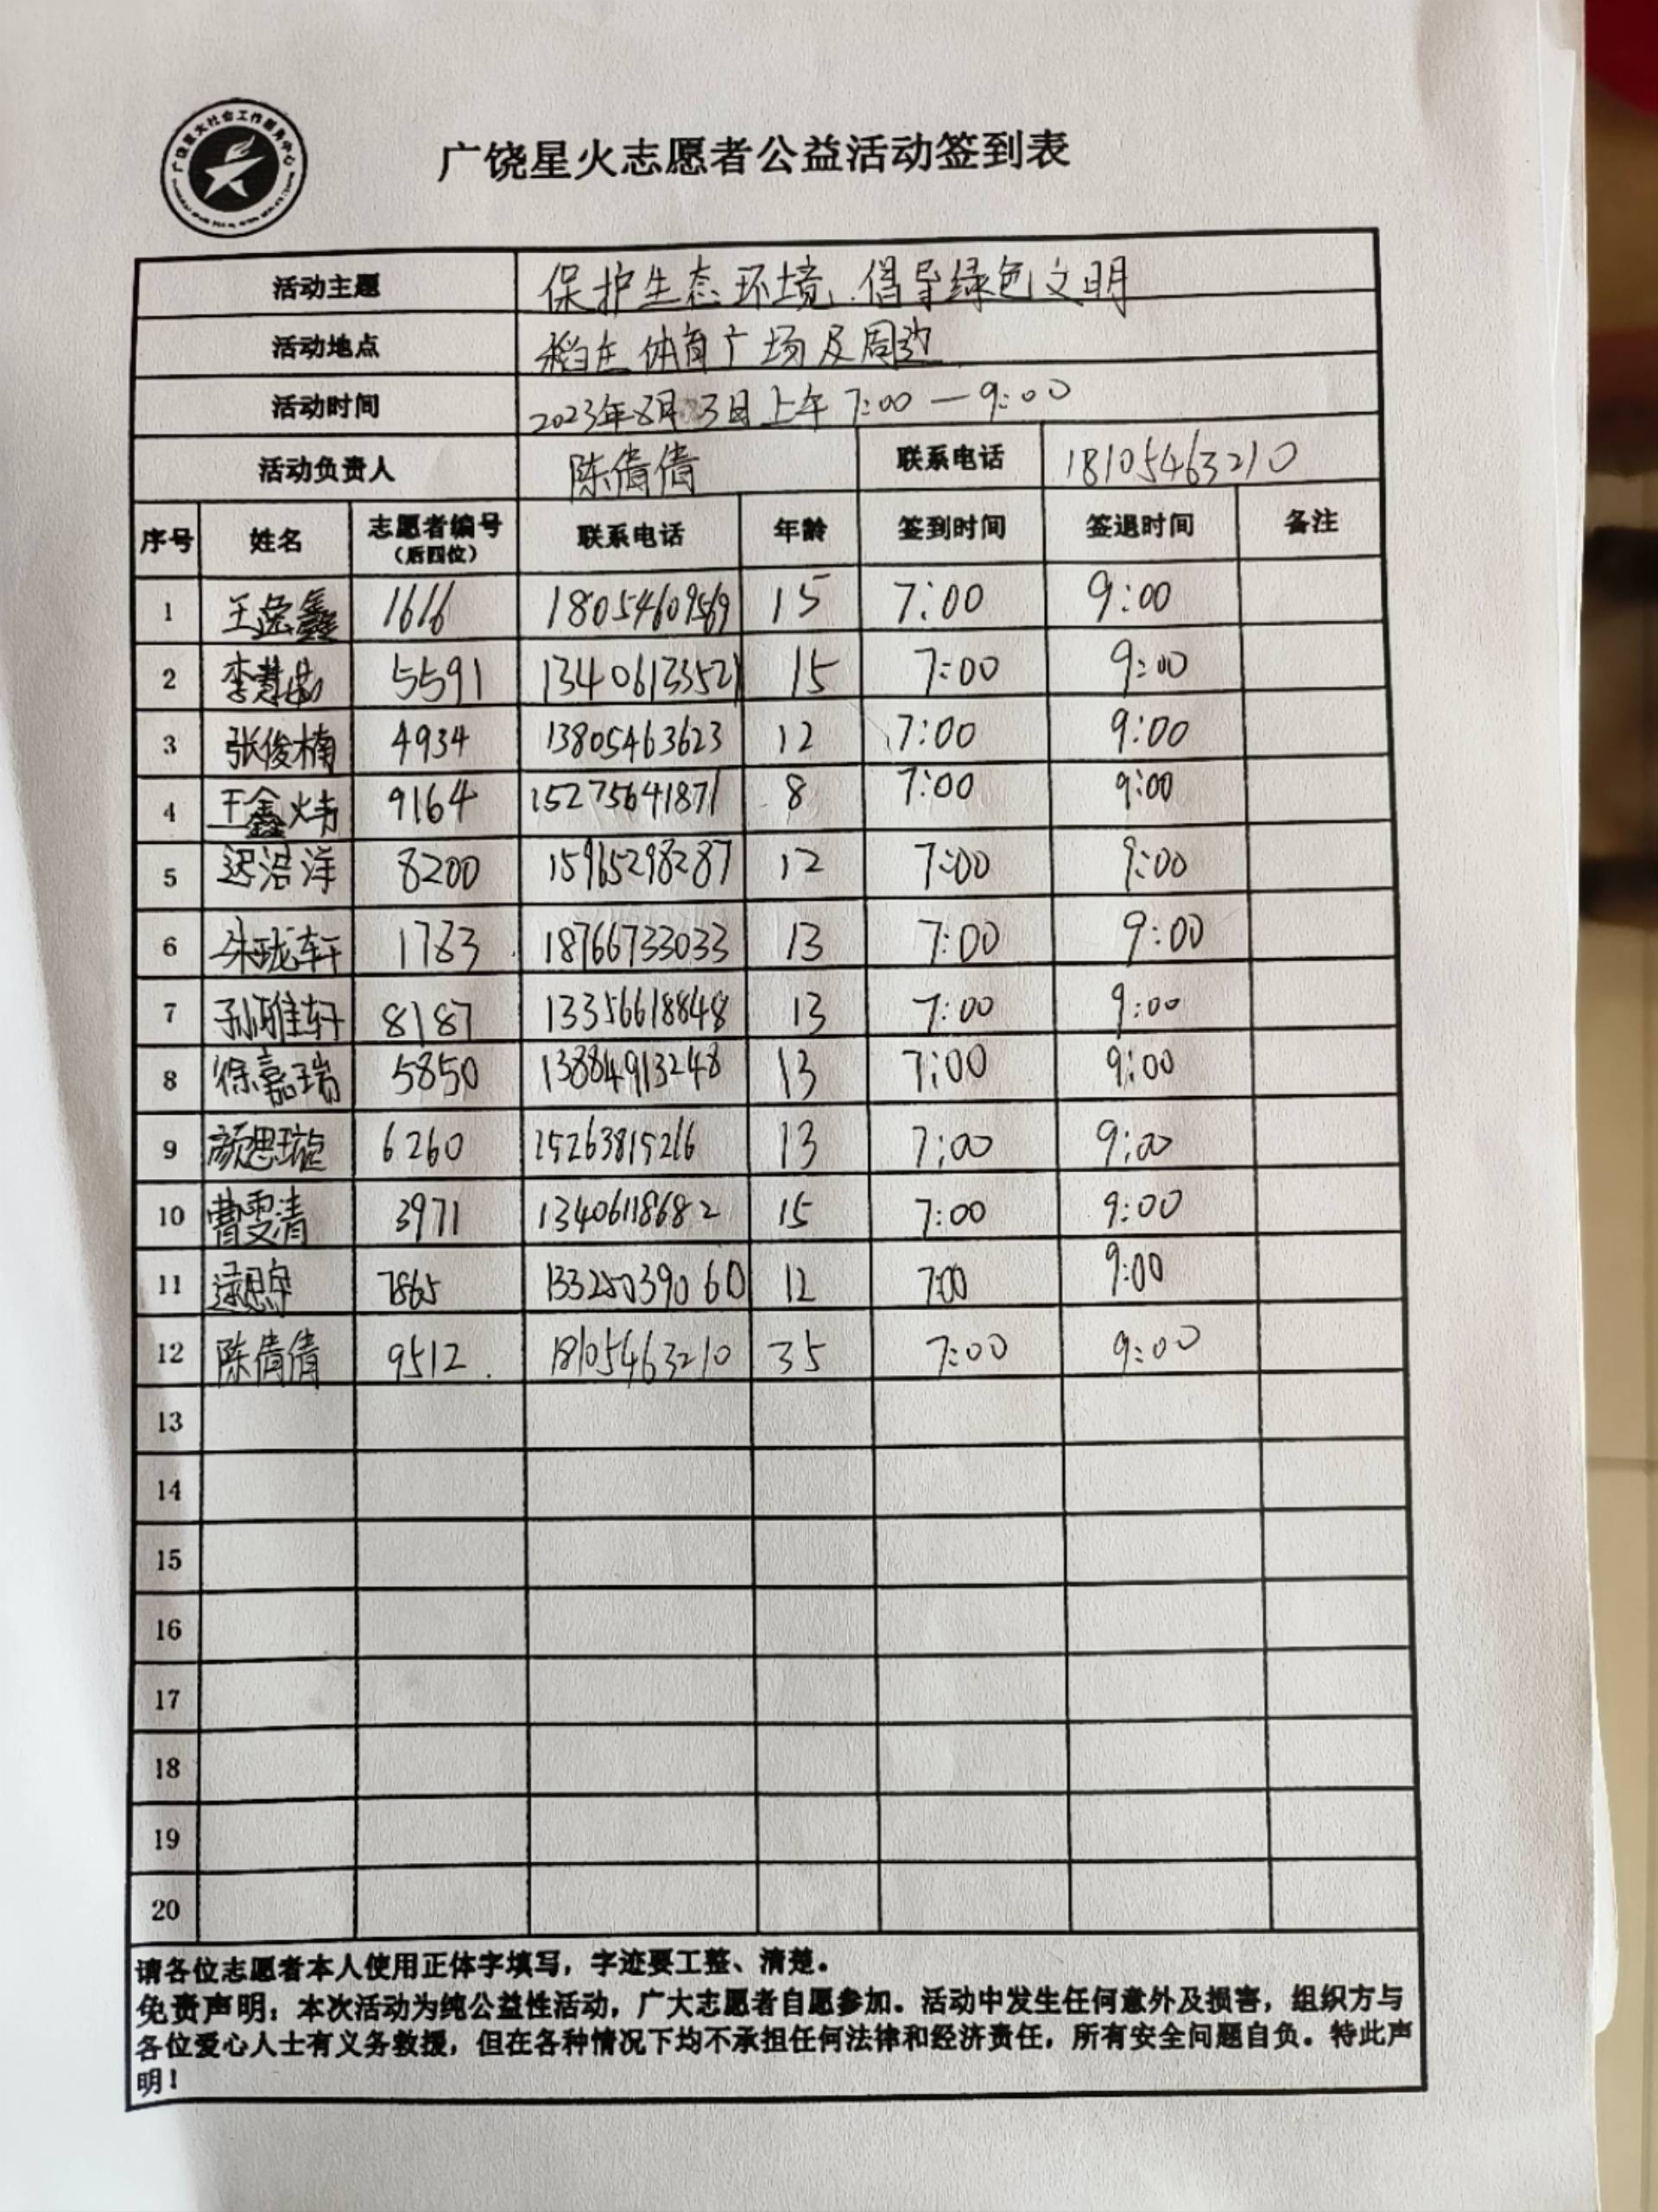 广饶星火社会工作服务中心
广饶星火志愿者公益活动签到表
活动主题 保护生态环境、倡导绿色文明
活动地点 稻庄体育广场及周边
活动时间 2023年8月3日上午7:00—9:00
活动负责人 陈倩倩 联系电话 18105463210
序号 姓名 志愿者编号（后四位） 联系电话 年龄 签到时间 签退时间 备注
1 王逸鑫 1616 18054609569 15 7:00 9:00
2 李慧 5591 13406133521 15 7:00 9:00
3 张俊楠 4934 13805463623 12 7:00 9:00
4 王鑫炜 9164 15275641871 8 7:00 9:00
5 迟浩洋 8200 15965298287 12 7:00 9:00
6 朱珑轩 1783 18766733033 13 7:00 9:00
7 孙雅轩 8187 13356618848 13 7:00 9:00
8 徐嘉瑞 5850 13884913248 13 7:00 9:00
9 颜思璇 6260 15263815216 13 7:00 9:00
10 曹雯清 3971 13406118682 15 7:00 9:00
11 7865 13325039060 12 7:00 9:00
12 陈倩倩 9512 18105463210 35 7:00 9:00
13
14
15
16
17
18
19
20
请各位志愿者本人使用正体字填写，字迹要工整、清楚。
免责声明：本次活动为纯公益性活动，广大志愿者自愿参加。活动中发生任何意外及损害，组织方与
各位爱心人士有义务救援，但在各种情况下均不承担任何法律和经济责任，所有安全问题自负。特此声
明！